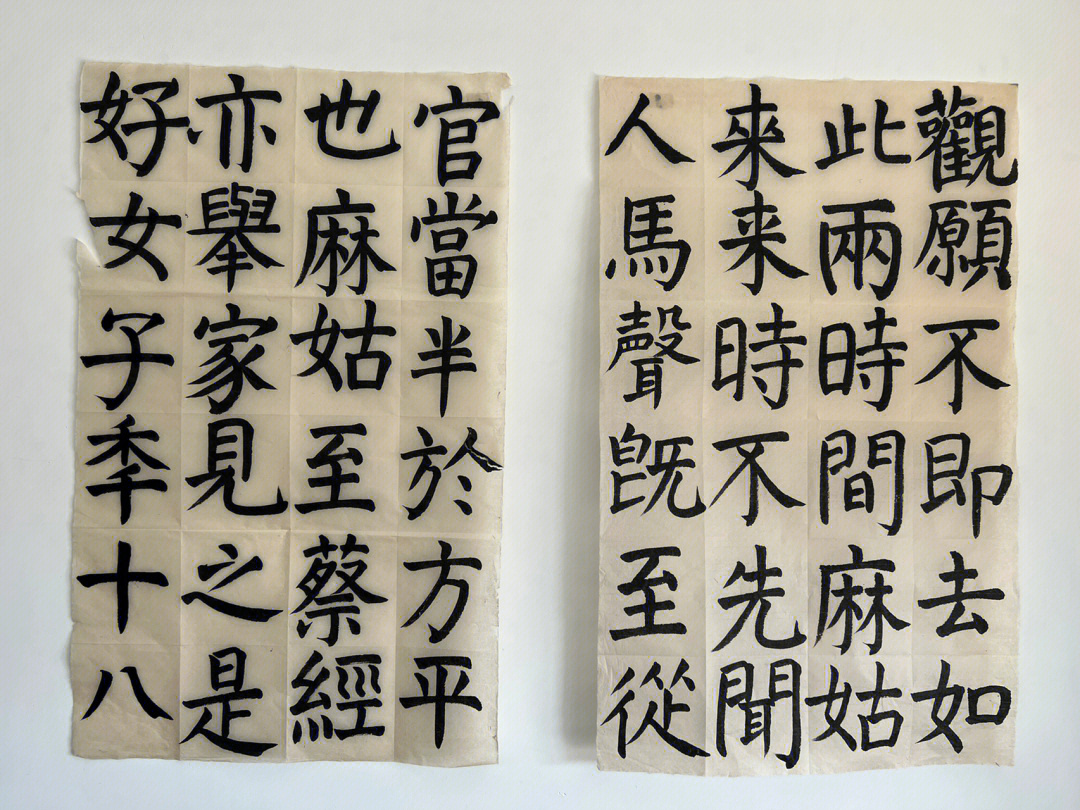 觀願不即去如
此兩時間麻姑
來来時不先聞
人馬聲既至從
官當半於方平
也麻姑至蔡經
亦舉家見之是
好女子秊十八